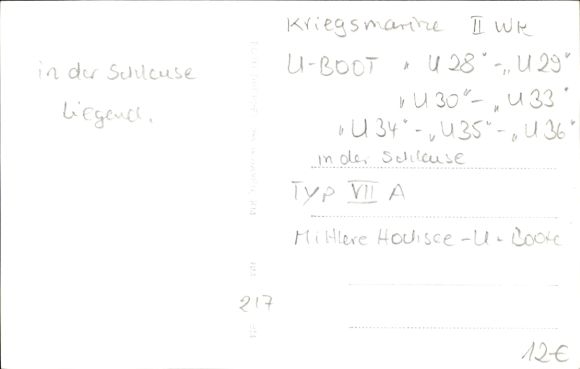 in der Schleuse
liegend.
Kriegsmarine II WK
U-BOOT „U 28“-„U 29“
„U 30“-„U 33“
„U 34“-„U 35“-„U 36“
in der Schleuse
Typ VII A
Mittlere Hochsee-U-Boote
217
12€